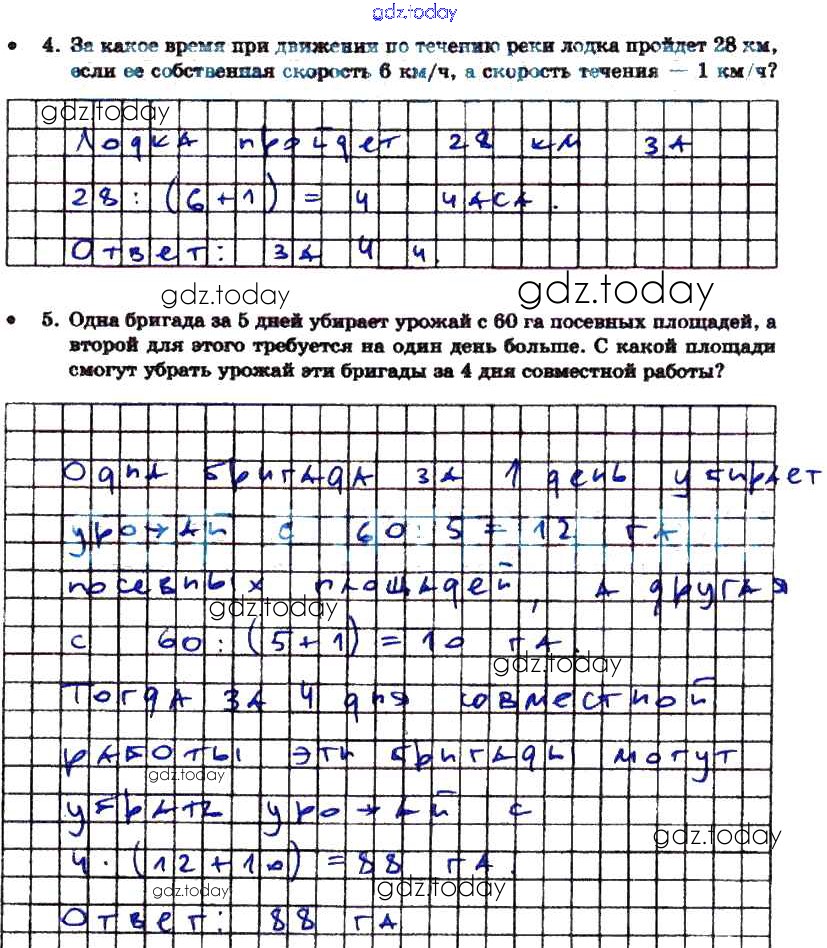 gdz.today
• 4. За какое время при движении по течению реки лодка пройдет 28 км,
если ее собственная скорость 6 км/ч, а скорость течения — 1 км/ч?
gdz.today
Лодка пройдет 28 км за
28 : (6+1) = 4 часа.
Ответ: за 4 ч.
gdz.today gdz.today
• 5. Одна бригада за 5 дней убирает урожай с 60 га посевных площадей, а
второй для этого требуется на один день больше. С какой площади
смогут убрать урожай эти бригады за 4 дня совместной работы?
Одна бригада за 1 день убирает
урожай с 60 : 5 = 12 га
посевных площадей, а другая
gdz.today
с 60 : (5+1) = 10 га.
gdz.today
Тогда за 4 дня совместной
работы эти бригады могут
gdz.today
убрать урожай с
gdz.today
4 · (12+10) = 88 га.
gdz.today gdz.today
Ответ: 88 га